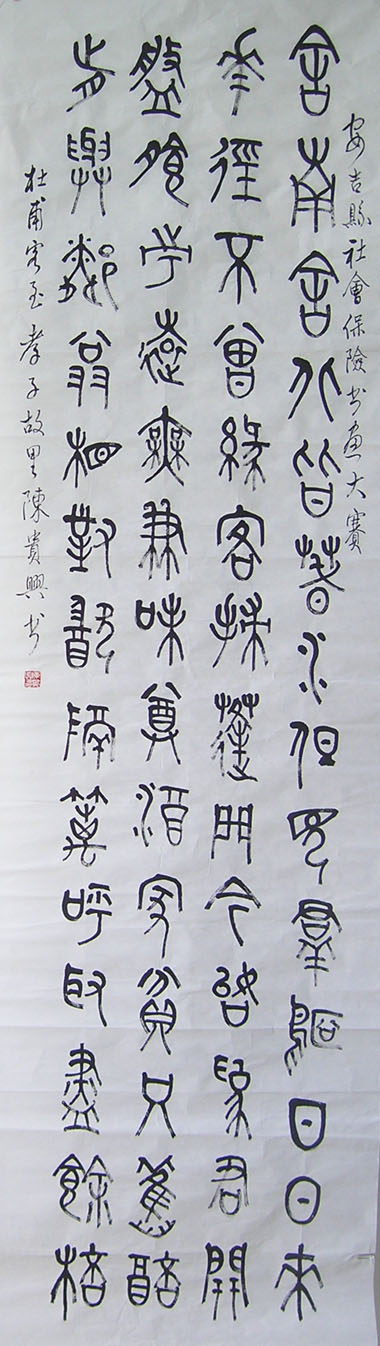 安吉縣社會保險书畫大賽
舍南舍北皆春水但見羣鷗日日來
華徑不曾緣客掃蓬門今始為君開
盤飧市遠無兼味尊酒家貧只舊醅
肯與鄰翁相對飲隔籬呼取盡餘桮
杜甫客至孝子故里陳貴興书